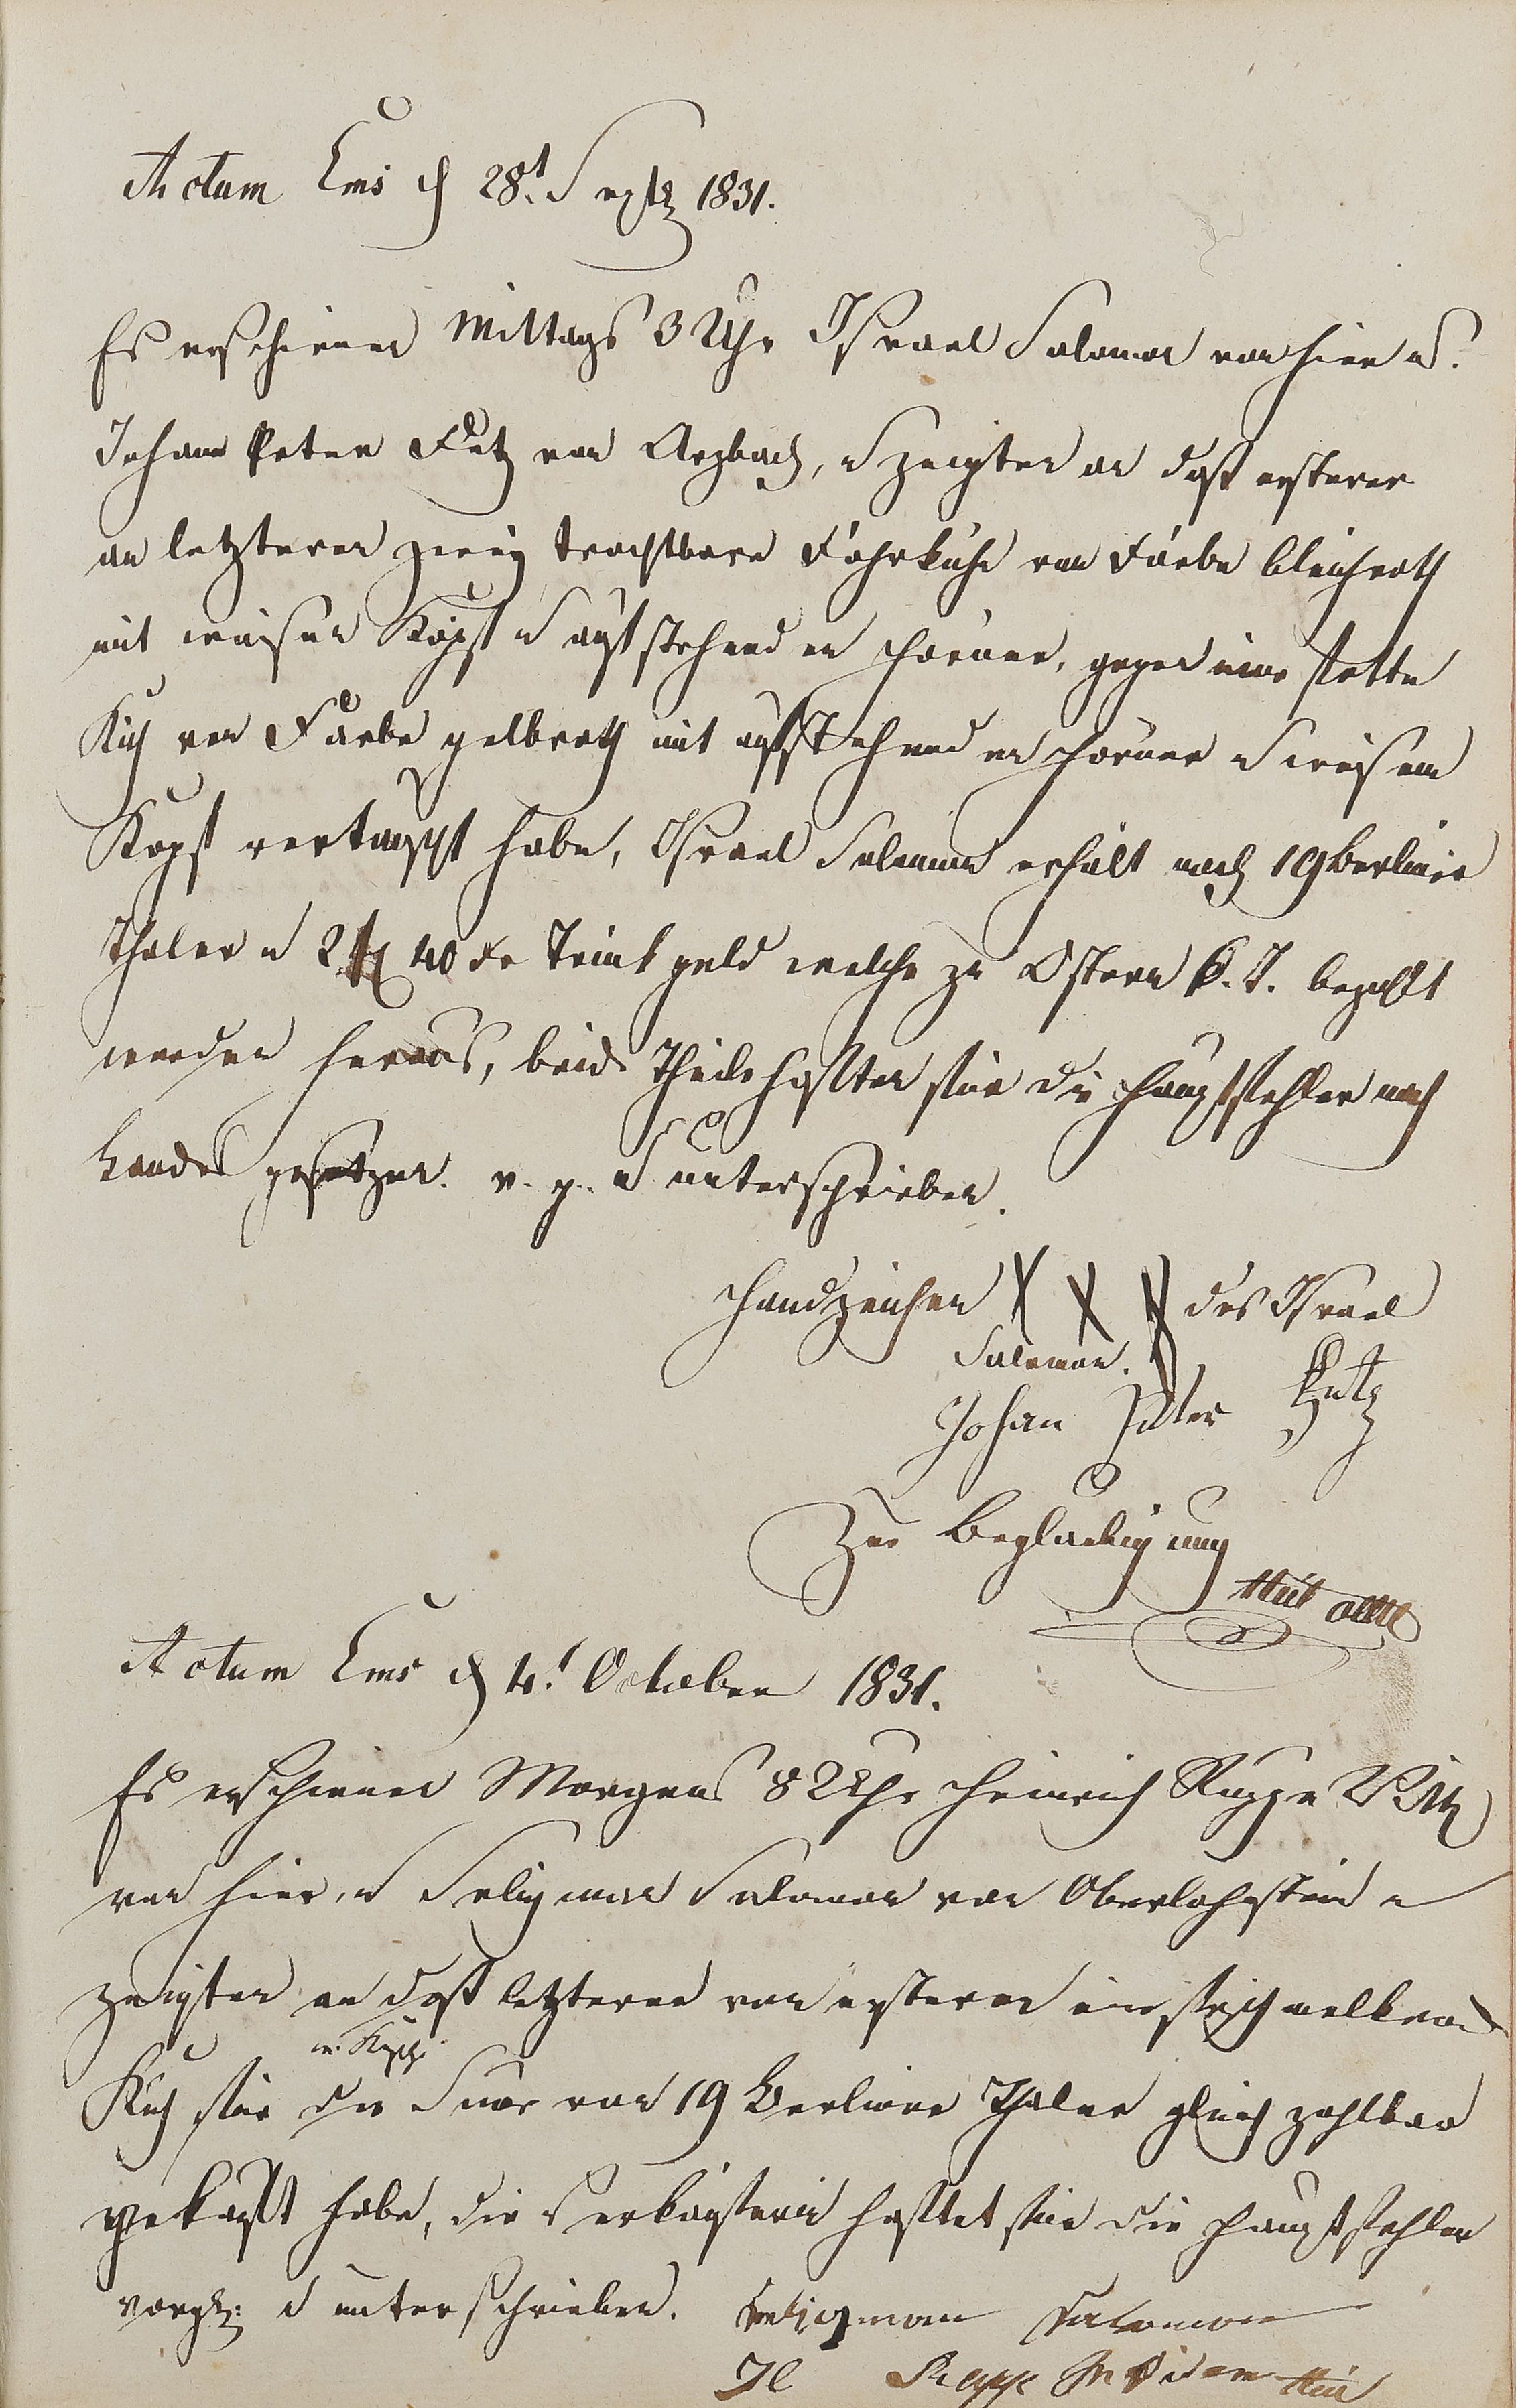 Actum Ems d 28t. Septbr 1831.
Es erschienen Mittags 3 Uhr Israel Salomon von hier u.
Johann Peter Butz von Arzbach, u zeigten an daß ersterer
an letzteren zwey trachtbare Fahrkühe von Farbe bleichroth
mit weisen Köpf u aufstehenden Hörner, gegen eine fette
Kuh von Farbe gelbroth mit aufstehenden Hörner u weisem
Kopf vertauscht habe, Israel Salomon erhält noch 19 Berliner
Thaler u 2 fl 40 xr Trinkgeld welche zu Ostern k. J. bezahlt
werden heraus, beide Theile haften für die Hauptfehler nach
Landes gesetzen. v. g. u unterschrieben.
Handzeichen X X X des Israel
Salomon.
Johan Peter Butz
Zur Beglaubigung
Actum Ems d 4t October 1831.
Es erschienen Morgens 8 Uhr Heinrich Rupp Wtb
von hier, u Seligman Salomon von Oberlahnstein u
zeigten an daß letzterer von ersterer eine frischmelkend
Kuh für die Sum von 19 Berliner Thaler gleich zahlbar
gekauft habe, die Verkäuferin haftet für die Hauptfehler
vorgel: u unterschrieben. Seligman Salomon
Rupp